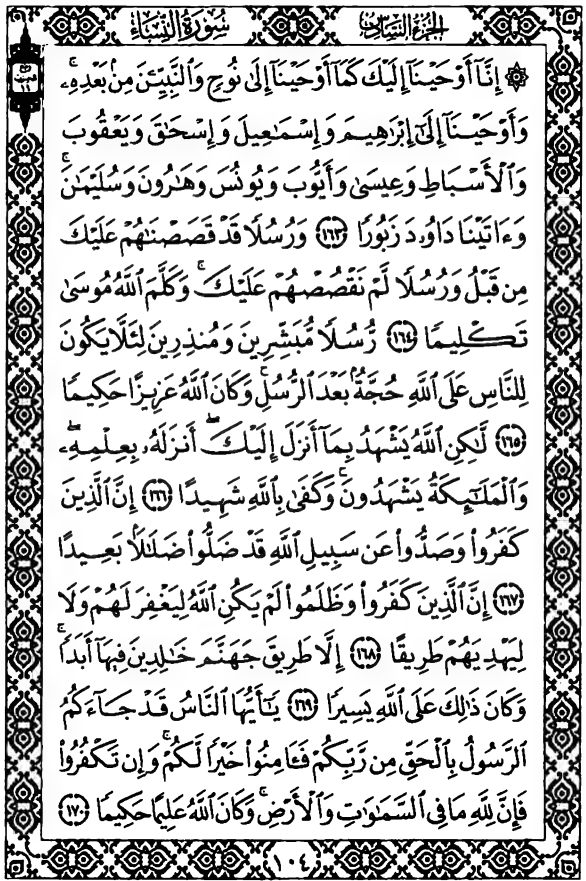 سُورَةُ النِّسَاءِ
الجُزْءُ السَّادِسُ
۞ إِنَّآ أَوْحَيْنَآ إِلَيْكَ كَمَآ أَوْحَيْنَآ إِلَىٰ نُوحٍ وَٱلنَّبِيِّـۧنَ مِنۢ بَعْدِهِۦۚ
وَأَوْحَيْنَآ إِلَىٰٓ إِبْرَٰهِيمَ وَإِسْمَٰعِيلَ وَإِسْحَٰقَ وَيَعْقُوبَ
وَٱلْأَسْبَاطِ وَعِيسَىٰ وَأَيُّوبَ وَيُونُسَ وَهَٰرُونَ وَسُلَيْمَٰنَۚ
وَءَاتَيْنَا دَاوُۥدَ زَبُورًا ١٦٣ وَرُسُلًا قَدْ قَصَصْنَٰهُمْ عَلَيْكَ
مِن قَبْلُ وَرُسُلًا لَّمْ نَقْصُصْهُمْ عَلَيْكَۚ وَكَلَّمَ ٱللَّهُ مُوسَىٰ
تَكْلِيمًا ١٦٤ رُّسُلًا مُّبَشِّرِينَ وَمُنذِرِينَ لِئَلَّا يَكُونَ
لِلنَّاسِ عَلَى ٱللَّهِ حُجَّةٌۢ بَعْدَ ٱلرُّسُلِۚ وَكَانَ ٱللَّهُ عَزِيزًا حَكِيمًا
١٦٥ لَّٰكِنِ ٱللَّهُ يَشْهَدُ بِمَآ أَنزَلَ إِلَيْكَۖ أَنزَلَهُۥ بِعِلْمِهِۦۖ
وَٱلْمَلَٰٓئِكَةُ يَشْهَدُونَۚ وَكَفَىٰ بِٱللَّهِ شَهِيدًا ١٦٦ إِنَّ ٱلَّذِينَ
كَفَرُوا۟ وَصَدُّوا۟ عَن سَبِيلِ ٱللَّهِ قَدْ ضَلُّوا۟ ضَلَٰلًۢا بَعِيدًا
١٦٧ إِنَّ ٱلَّذِينَ كَفَرُوا۟ وَظَلَمُوا۟ لَمْ يَكُنِ ٱللَّهُ لِيَغْفِرَ لَهُمْ وَلَا
لِيَهْدِيَهُمْ طَرِيقًا ١٦٨ إِلَّا طَرِيقَ جَهَنَّمَ خَٰلِدِينَ فِيهَآ أَبَدًاۚ
وَكَانَ ذَٰلِكَ عَلَى ٱللَّهِ يَسِيرًا ١٦٩ يَٰٓأَيُّهَا ٱلنَّاسُ قَدْ جَآءَكُمُ
ٱلرَّسُولُ بِٱلْحَقِّ مِن رَّبِّكُمْ فَـَٔامِنُوا۟ خَيْرًا لَّكُمْۚ وَإِن تَكْفُرُوا۟
فَإِنَّ لِلَّهِ مَا فِى ٱلسَّمَٰوَٰتِ وَٱلْأَرْضِۚ وَكَانَ ٱللَّهُ عَلِيمًا حَكِيمًا ١٧٠
١٠٤